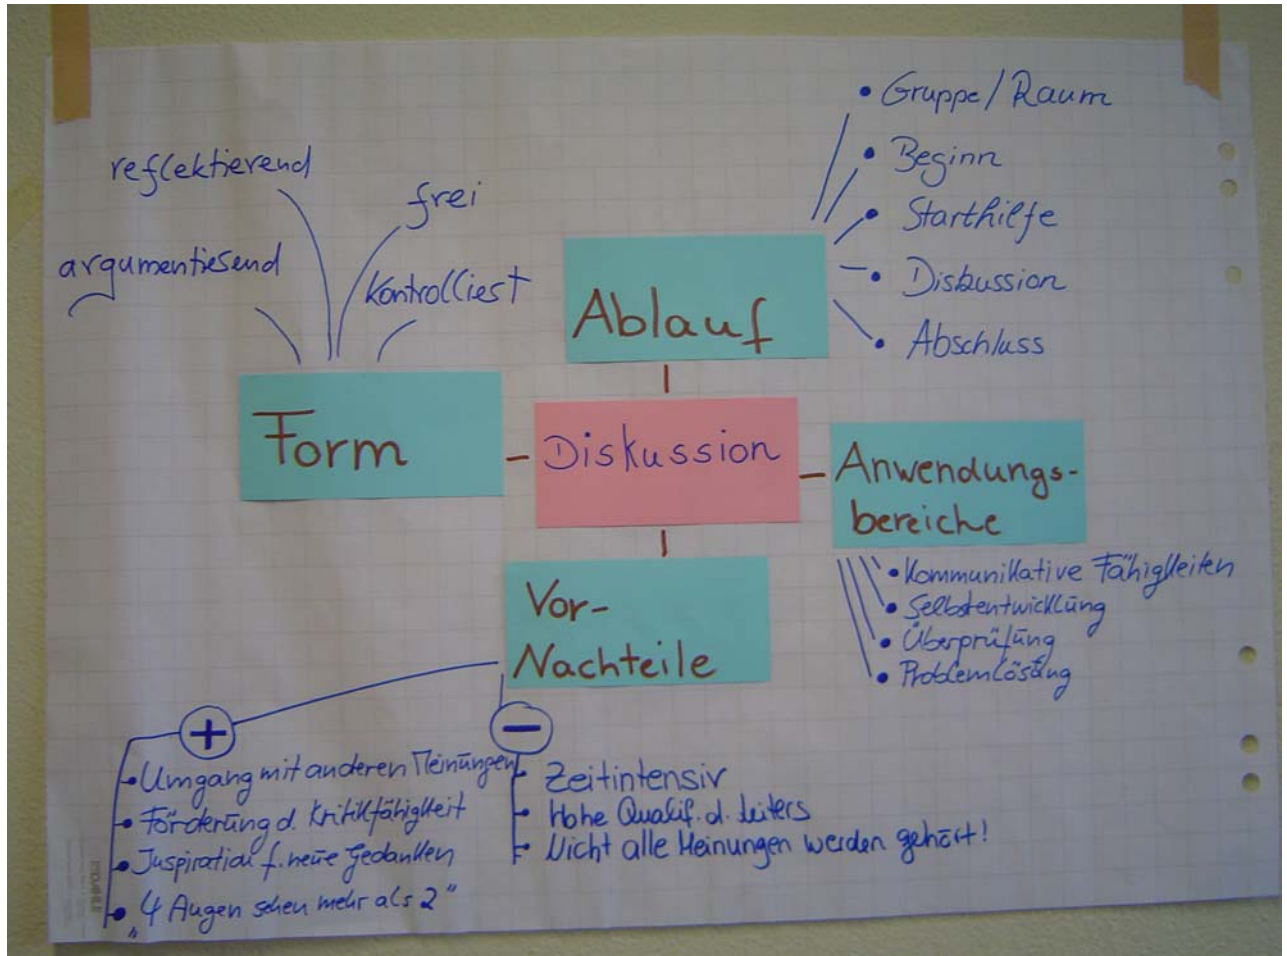 reflektierend
frei
argumentierend
kontrolliert
Form
Ablauf
• Gruppe/Raum
• Beginn
• Starthilfe
• Diskussion
• Abschluss
Diskussion
Anwendungs-
bereiche
• Kommunikative Fähigkeiten
• Selbstentwicklung
• Überprüfung
• Problemlösung
Vor-
Nachteile
+
• Umgang mit anderen Meinungen
• Förderung d. Kritikfähigkeit
• Inspiration f. neue Gedanken
• „4 Augen sehen mehr als 2“
−
• Zeitintensiv
• Hohe Qualif. d. Leiters
• Nicht alle Meinungen werden gehört!